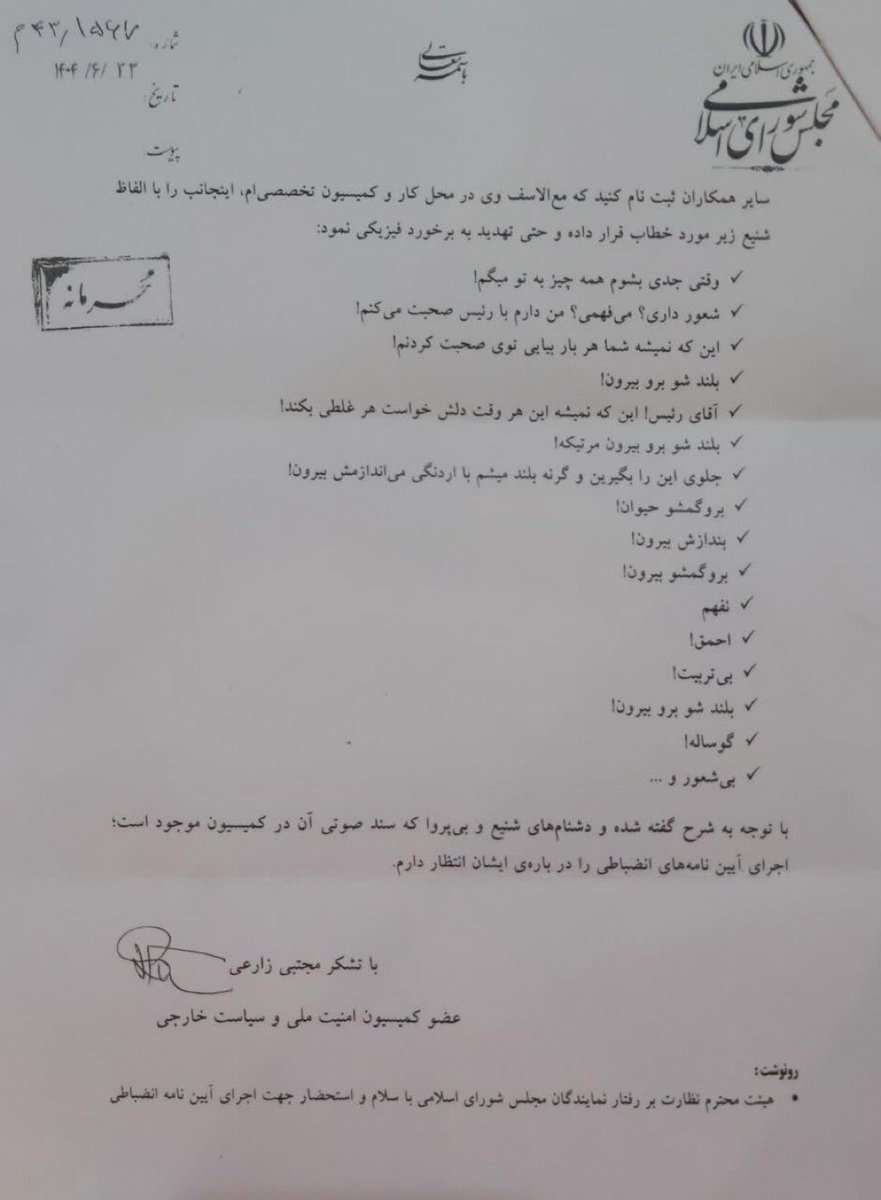 باسمه تعالی
جمهوری اسلامی ایران
مجلس شورای اسلامی
شماره:
تاریخ: ۱۴۰۴/۶/۲۳
پیوست:
محرمانه
سایر همکاران ثبت نام کنید که مع‌الاسف وی در محل کار و کمیسیون تخصصی‌ام، اینجانب را با الفاظ
شنیع زیر مورد خطاب قرار داده و حتی تهدید به برخورد فیزیکی نمود:
✓ وقتی جدی بشوم همه چیز به تو میگم!
✓ شعور داری؟ می‌فهمی؟ من دارم با رئیس صحبت می‌کنم!
✓ این که نمیشه شما هر بار بیایی توی صحبت کردنم!
✓ بلند شو برو بیرون!
✓ آقای رئیس! این که نمیشه این هر وقت دلش خواست هر غلطی بکند!
✓ بلند شو برو بیرون مرتیکه!
✓ جلوی این را بگیرین و گرنه بلند میشم با اردنگی می‌اندازمش بیرون!
✓ بروگمشو حیوان!
✓ بندازش بیرون!
✓ بروگمشو بیرون!
✓ نفهم
✓ احمق!
✓ بی‌تربیت!
✓ بلند شو برو بیرون!
✓ گوساله!
✓ بی‌شعور و ...
با توجه به شرح گفته شده و دشنام‌های شنیع و بی‌پروا که سند صوتی آن در کمیسیون موجود است؛
اجرای آیین نامه‌های انضباطی را در باره‌ی ایشان انتظار دارم.
با تشکر مجتبی زارعی
عضو کمیسیون امنیت ملی و سیاست خارجی
رونوشت:
• هیئت محترم نظارت بر رفتار نمایندگان مجلس شورای اسلامی با سلام و استحضار جهت اجرای آیین نامه انضباطی